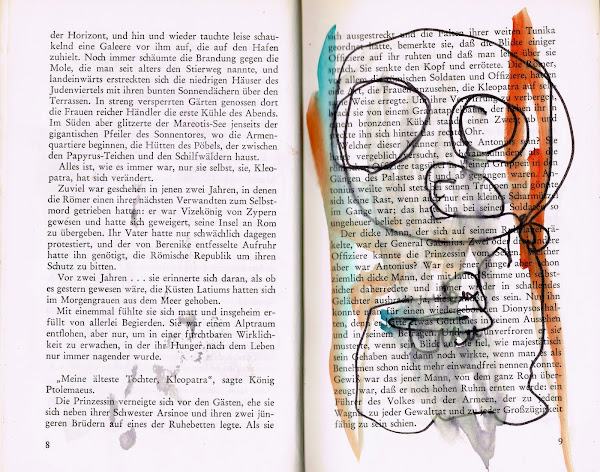 der Horizont, und hin und wieder tauchte leise schau-
kelnd eine Galeere vor ihm auf, die auf den Hafen
zuhielt. Noch immer schäumte die Brandung gegen die
Mole, die man seit alters den Stierweg nannte, und
landeinwärts erstreckten sich die niedrigen Häuser des
Judenviertels mit ihren bunten Sonnendächern über den
Terrassen. In streng versperrten Gärten genossen dort
die Frauen reicher Händler die erste Kühle des Abends.
Im Süden aber glitzerte der Mareotis-See jenseits der
gigantischen Pfeiler des Sonnentores, wo die Armen-
quartiere beginnen, die Hütten des Pöbels, der zwischen
den Papyrus-Teichen und den Schilfwäldern haust.
Alles ist, wie es immer war, nur sie selbst, sie, Kleo-
patra, hat sich verändert.
Zuviel war geschehen in jenen zwei Jahren, in denen
die Römer einen ihrer nächsten Verwandten zum Selbst-
mord getrieben hatten: er war Vizekönig von Zypern
gewesen und hatte sich geweigert, seine Insel an Rom
zu übergeben. Ihr Vater hatte nur schwächlich dagegen
protestiert, und der von Berenike entfesselte Aufruhr
hatte ihn genötigt, die Römische Republik um ihren
Schutz zu bitten.
Vor zwei Jahren . . . sie erinnerte sich daran, als ob
es gestern gewesen wäre, die Küsten Latiums hatten sich
im Morgengrauen aus dem Meer gehoben.
Mit einemmal fühlte sie sich matt und insgeheim er-
füllt von allerlei Begierden. Sie war einem Alptraum
entflohen, aber nur, um in eine furchtbaren Wirklich-
keit zu erwachen, in der ihr Hunger nach dem Leben
nur immer nagender wurde.
„Meine älteste Tochter, Kleopatra“, sagte König
Ptolemaeus.
Die Prinzessin verneigte sich vor den Gästen, ehe sie
sich neben ihrer Schwester Arsinoe und ihren zwei jün-
geren Brüdern auf eines der Ruhebetten legte. Als sie
8
sich ausgestreckt und die Falten ihrer weiten Tunika
geordnet hatte, bemerkte sie, daß die Blicke einiger
Offiziere auf ihr ruhten und daß man leise über sie
sprach. Sie senkte den Kopf und errötete. Die Römer,
Soldaten und Offiziere, hatten
die Frauen anzusehen, die Kleopatra auf
Weise erregte. Um ihre Verwirrung zu verbergen,
sie von einem Granatapfel der in einer
bronzenen einen Zweig und
ihn sich hinter das rechte Ohr.
Welcher dieser Männer Antonius sein? Sie
Gängen des Palastes auf und ab
tonius weilte wohl stets seinen Truppen und gönnte
sich keine Rast, wenn auch nur ein einziges
im Gange war; das hatte ihn bei den Scharmützeln
ungeheuer beliebt gemacht.
Der dicke Mann, der sich auf einem
kelte, war der General Gabinius. Zwei oder drei
Offiziere kannte die Prinzessin vom
aber war Antonius? War es jener schon
ziemlich dicke Mann, der mit lauter Stimme unbekü-
sicher daherredete und immer wieder in schallendes
Gelächter ausbrach? ja, er mußte es sein. Nur ihn
konnte man für einen wiedererstandenen Dionysos hal-
ten, den seinem Aussehen
und seinem unverfroren
mustern, wenn Blick auf sie fiel, wie majestätisch
sein Gehaben auch dann noch wirkte, wenn man an sein
Benehmen schon nicht mehr einwandfrei nennen konnte.
Gewiß war das jener Mann, von dem ganz Rom über-
zeugt war, daß er noch hohen Ruhm ernten werde: ein
Führer des Volkes und der Armeen, der zu jedem
Wagnis, zu jeder Gewalttat und zu jeder Großzügigkeit
fähig zu sein schien.
9